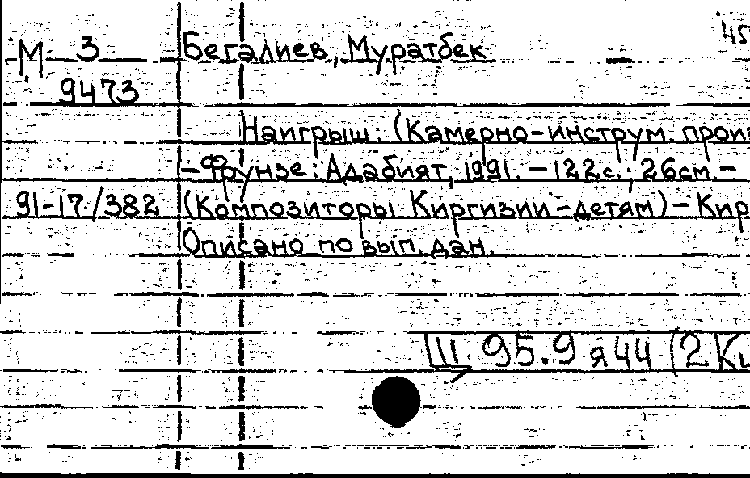 45
М 3 Бегалиев, Муратбек
9473
Наигрыш: (Камерно-инструм. прои
-Фрунзе: Адабият, 1991. - 122с.; 26см. -
91-17/382 (Композиторы Киргизии - детям) - Кир
Описано по вып. дан.
Ш 95.9 я44 (2Ки